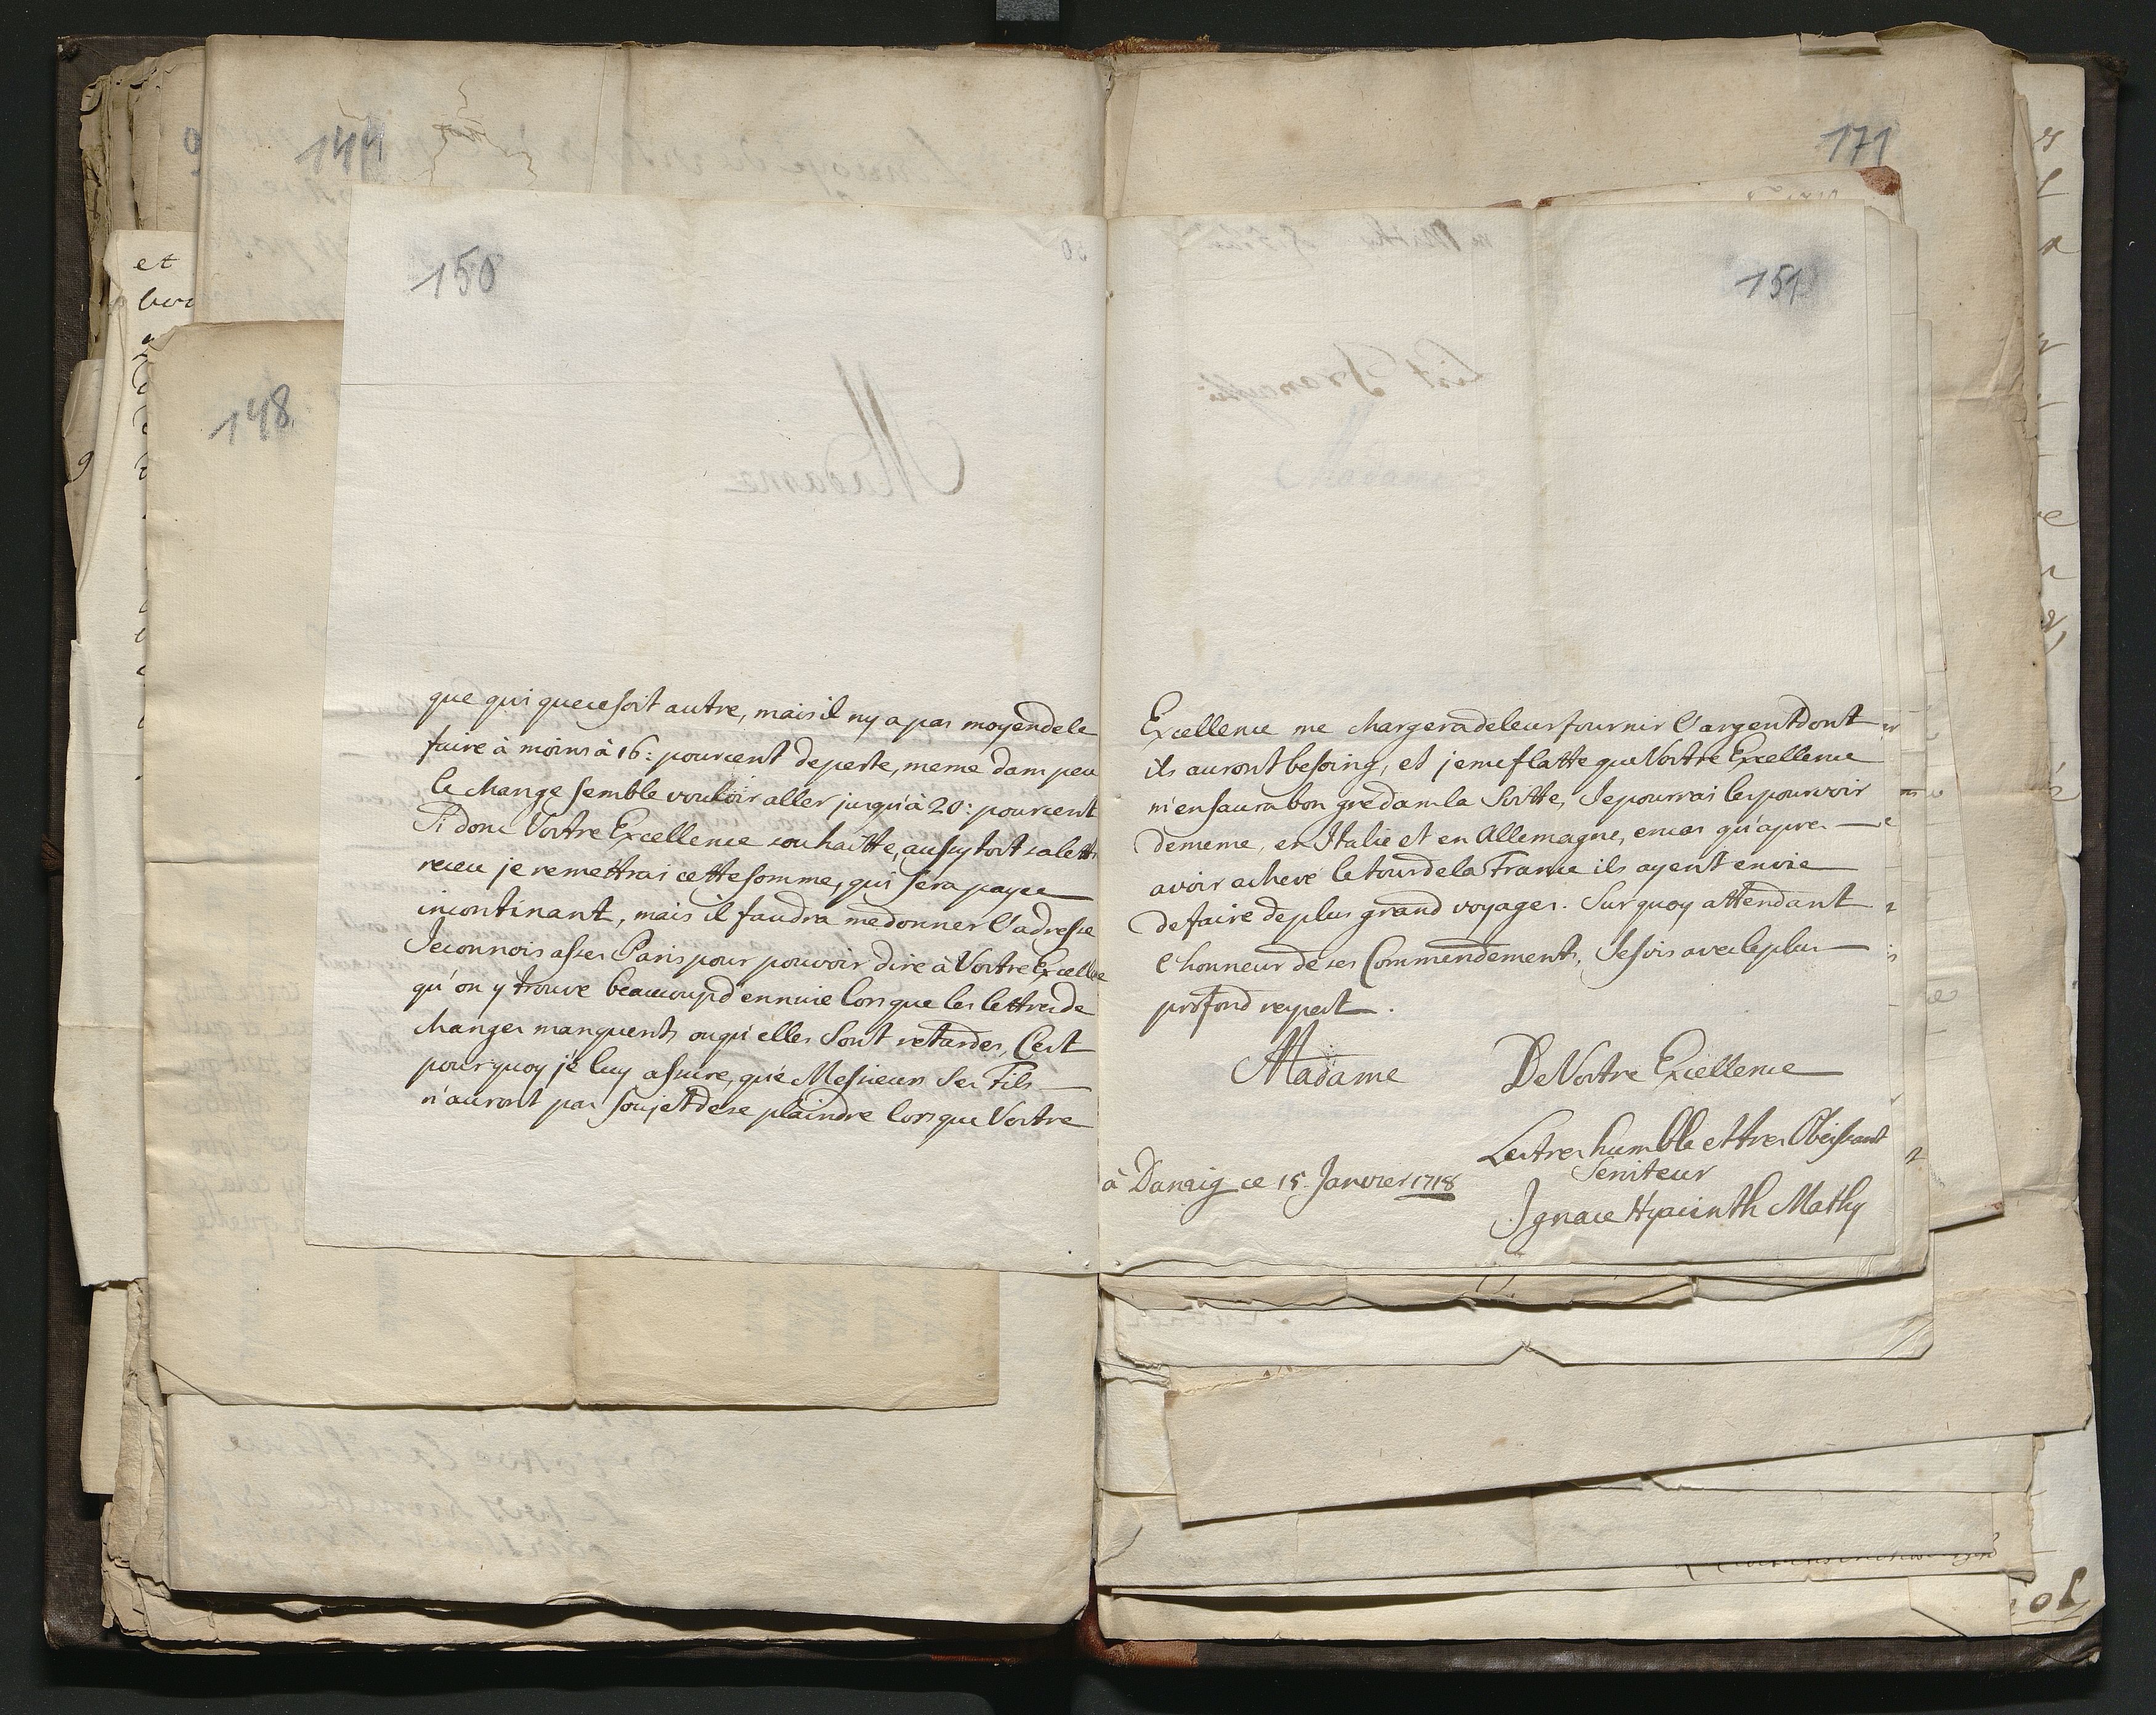 150
que qui que ce soit autre, mais il ny a pas moyen de le
faire à moins à 16: pourcent de perte, meme dans peu
le change semble vouloir aller jusqu'à 20: pourcent
Si donc Vostre Excellence souhaitte, aussy tost sa lettr
receu je remettrai cette somme, qui sera payee
incontinant, mais il faudra me donner l'adresse
Je connois asses Paris pour pouvoir dire à Vostre Excellce
qu'on y trouve beaucoup d'ennuie lors que les lettres de
changes manquents ou qu'elles sont retardes, C'est
pourquoy je luy assure, que Messieurs Ses Fils
n'auront pas soujet de se plaindre lors que Vostre
151
Excellence me chargera de leur fournir l'argent dont
ils auront besoing, et je me flatte que Vostre Excellence
m'en saura bon gré dans la Suitte, Je pourrai les pourvoir
de meme, en Italie et en Allemagne, en cas qu'apres
avoir achevé le tour de la France ils ayent envie
de faire de plus grand voyages. Sur quoy attendant
l'honneur de ses Commendements, Je suis avec le plus
profond respect.
Madame
De Vostre Excellence
Le tres humble et tres Obeissant
Serviteur
à Danzig ce 15. Janvier 1718
Ignace Hyacinth Mathy
171
148